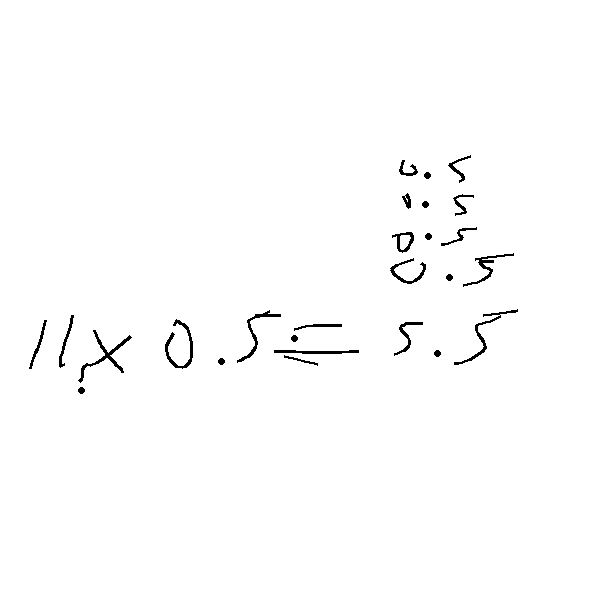 0.5
0.5
0.5
0.5
11 x 0.5 = 5.5